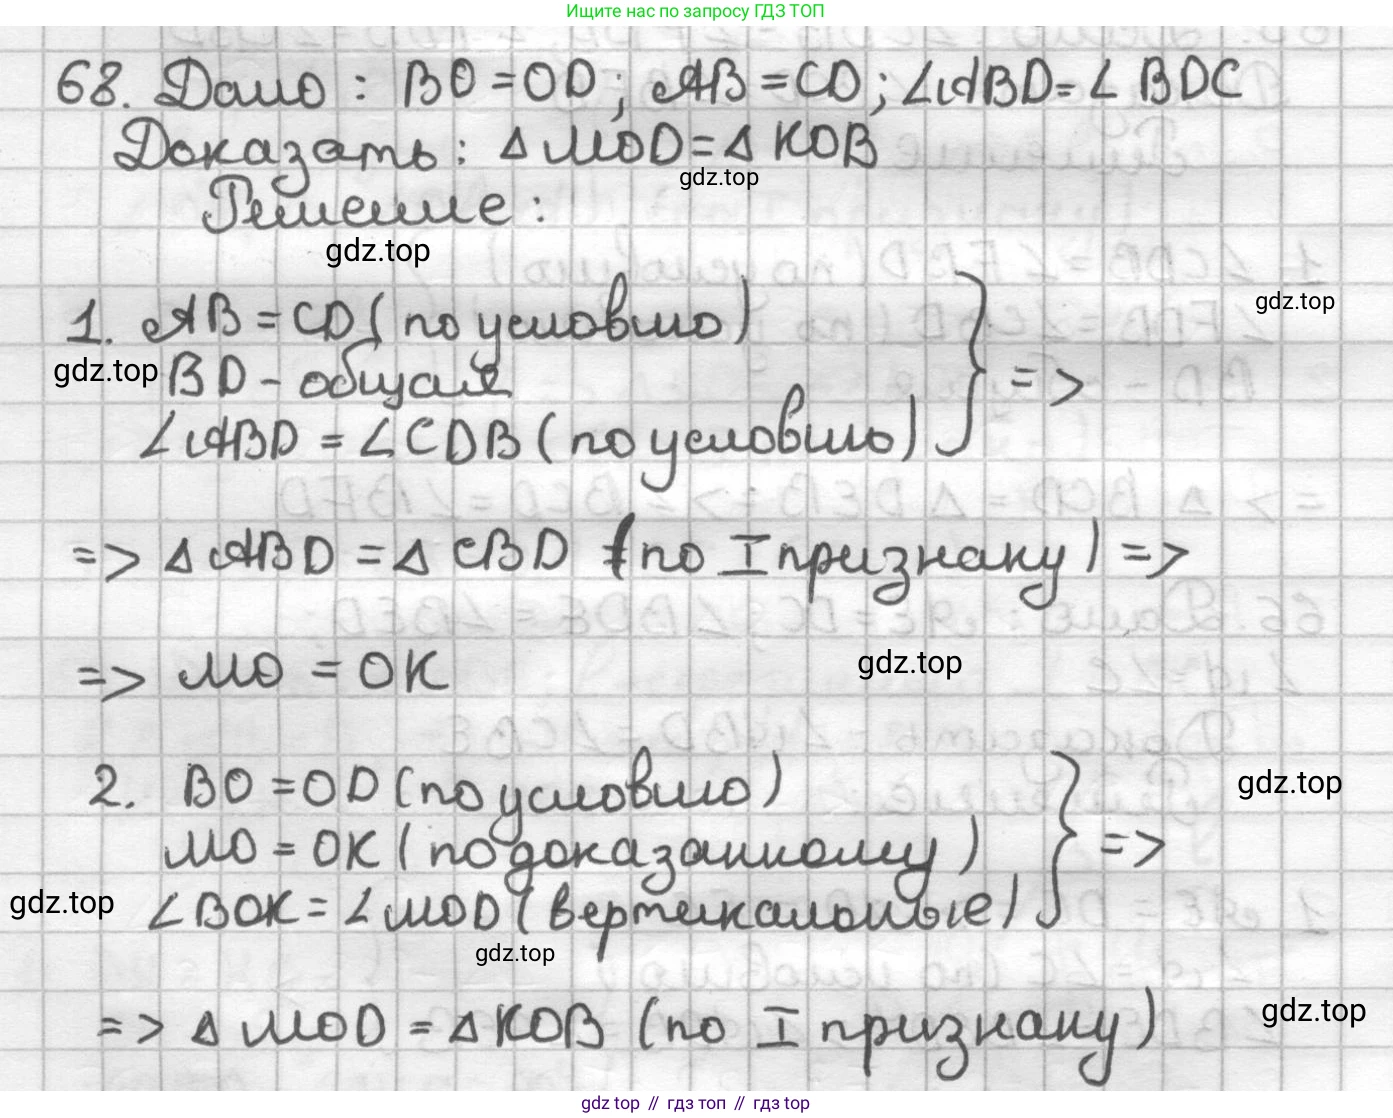 Ищите нас по запросу ГДЗ ТОП
68. Дано : BO = OD ; AB = CD ; ∠ABD = ∠ BDC
Доказать : Δ MOD = Δ KOB
gdz.top
Решение :
gdz.top
1. AB = CD ( по условию )
gdz.top
gdz.top
BD - общая
=>
∠ABD = ∠CDB ( по условию )
=> Δ ABD = Δ CBD ( по I признаку ) =>
=> MO = OK
gdz.top
2. BO = OD ( по условию )
gdz.top
MO = OK ( по доказанному )
=>
gdz.top
∠BOK = ∠MOD ( вертикальные )
gdz.top
=> Δ MOD = Δ KOB ( по I признаку )
gdz.top
gdz top // гдз топ // гдз top